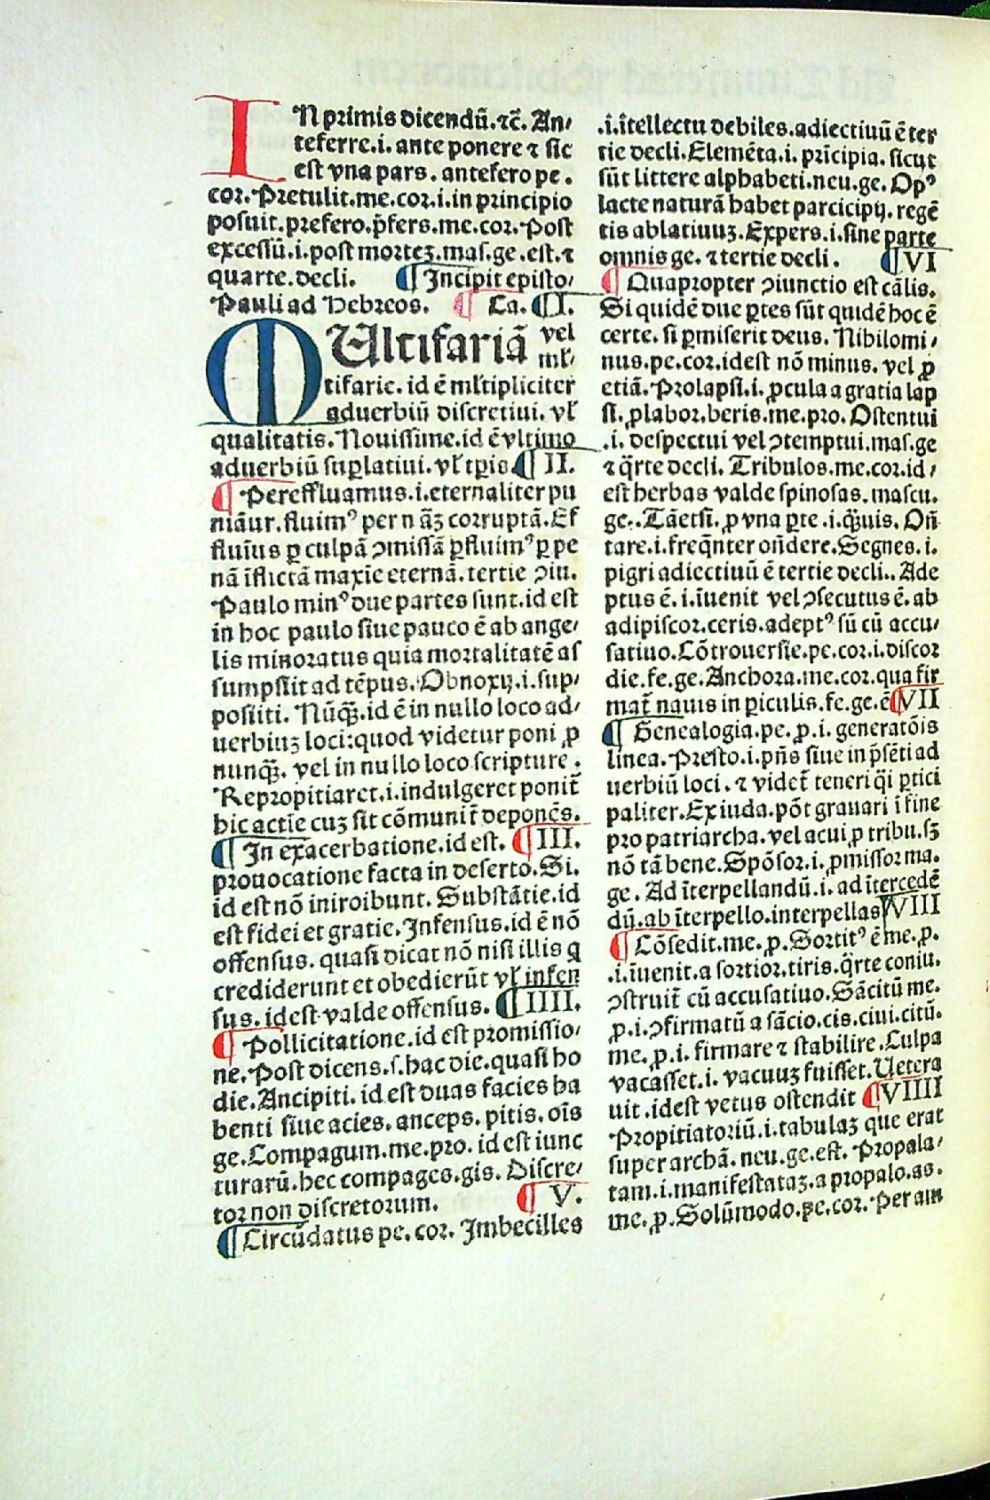 IN primis dicendū.⁊c̄. An⸗
teferre.i. ante ponere ⁊ sic
est vna pars. antefero pe.
cor. Pretulit.me.cor.i.in principio
posuit.prefero.p̄fers.me.cor. Post
excessū.i.post morteꝫ.mas.ge.est.⁊
quarte.decli. ¶ Incipit episto⸗
Pauli ad Hebreos. ¶ Ca. ¶ I.
MUltifariā vel
ml̄⸗
tifarie. id ē ml̄tipliciter
aduerbiū discretiui. vl̓
qualitatis. Nouissime.id ē vltimo
aduerbiū suꝑlatiui. vl̓ tꝑis ¶ II.
¶ Pereffluamus.i.eternaliter pu
niāur.fluimꝰ per n āꝫ corruptā.Ef
fluim̄us ꝑ culpā ꝯmissā ꝑfluimꝰ ꝑ pe
nā īflictā maxīe eternā. tertie ꝯiu.
Paulo minꝰ due partes sunt.id est
in hoc paulo siue pauco ē ab ange⸗
lis minoratus quia mortalitatē as
sumpsit ad tēpus. Obnoxij.i.sup⸗
positi. Nūqꝫ̄.id ē in nullo loco ad⸗
uerbiuꝫ loci:quod videtur poni ꝓ
nunqꝫ̄. vel in nullo loco scripture.
Repropitiaret.i.indulgeret ponit̄
hic actīe cuꝫ sit cōmunit̄ deponēs.
¶ In exacerbatione.id est. ¶ III.
prouocatione facta in deserto. Si.
id est nō iniroibunt. Substātie.id
est fidei et gratie. Infensus.id ē nō
offensus. quasi dicat nō nisi illis q
crediderunt et obedierūt vl̓ infen
sus. id est valde offensus. ¶ IIII.
¶ Pollicitatione.id est promissio⸗
ne. Post dicens.s.hac die.quasi ho
die. Ancipiti. id est duas facies ha
benti siue acies. anceps. pitis. oīs
ge. Compagum.me.pro. id est iunc
turarū.hec compages.gis. Discre⸗
tor non discretorum. ¶ V.
¶ Circūdatus pe. cor. Imbecilles
.i.ītellectu debiles.adiectiuū ē ter
tie decli. Elemēta.i. prīcipia. sicut
sūt littere alphabeti.neu.ge. Opꝰ
lacte naturā habet parcicipij. regē
tis ablatiuuꝫ. Expers.i.sine parte
omnis ge. ⁊ tertie decli. ¶ VI
¶ Quapropter ꝯiunctio est cālis.
Si quidē due ꝑtes sūt quidē hoc ē
certe. si ꝑmiserit deus. Nihilomi⸗
nus.pe.cor.idest nō minus. vel ꝓ
etiā. Prolapsi.i. ꝓcul a a gratia lap
si. ꝓlabor.beris.me.pro. Ostentui
.i. despectui vel ꝯtemptui.mas.ge
⁊ q̄rte decli. Tribulos.me.cor.id⸗
est herbas valde spinosas.mascu.
ge.. Tāetsi. ꝓ vna ꝑte .i.qꝫ̄uis. Oñ
tare.i.freq̄nter oñdere. Segnes. i.
pigri adiectiuū ē tertie decli.. Ade
ptus ē. i. īuenit vel ꝯsecutus ē. ab
adipiscor.ceris.adeptꝰ sū cū accu⸗
satiuo. Cōtrouersie.pe.cor.i.discor
die.fe.ge. Anchora.me.cor.qua fir
mat̄ nauis in ꝑiculis.fe.ge.ē ¶ VII
¶ Genealogia.pe. ꝓ.i. generatōis
linea. Presto.i.pn̄s siue in p̄sēti ad
uerbiū loci. ⁊ videt̄ teneri q̄i ꝑtici
paliter. Ex iuda.pōt grauari i fine
pro patriarcha. vel acui ꝓ tribu.sꝫ
nō tā bene. Spōsor.i. ꝓmissor ma.
ge. Ad īterpellandū.i. ad ītercedē
dū.ab īterpello.interpellas ¶ VIII
¶ Cōsedit.me. ꝓ. Sortitꝰ ē me. ꝓ.
.i.īuenit.a sortior.tiris.q̄rte coniu.
ꝯstruit̄ cū accusatiuo. Sācitū me.
ꝓ.i.ꝯfirmatū a sācio.cis.ciui.citū.
me. ꝓ.i. firmare ⁊ stabilire. Culpa
vacasset.i. vacuuꝫ fuisset. Uetera
uit .idest vetus ostendit ¶ VIIII
Propitiatoriū.i.tabulaꝫ que erat
super archā. neu.ge.est. Propala⸗
tam.i.manifestataꝫ.a propalo.as.
me. ꝓ. Solūmodo.pe.cor. Peram